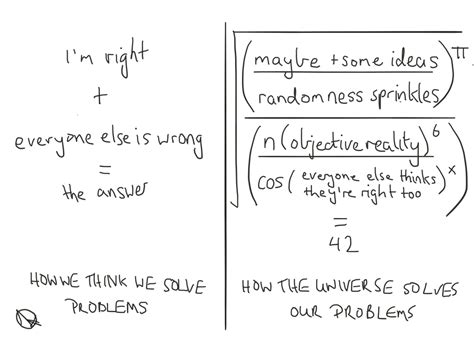 I'm right
+
everyone else is wrong
=
the answer
HOW WE THINK WE SOLVE
PROBLEMS
√
(maybe + some ideas
randomness sprinkles)^π
(n(objective reality)^6
cos(everyone else thinks
they're right too)^x)
=
42
HOW THE UNIVERSE SOLVES
OUR PROBLEMS